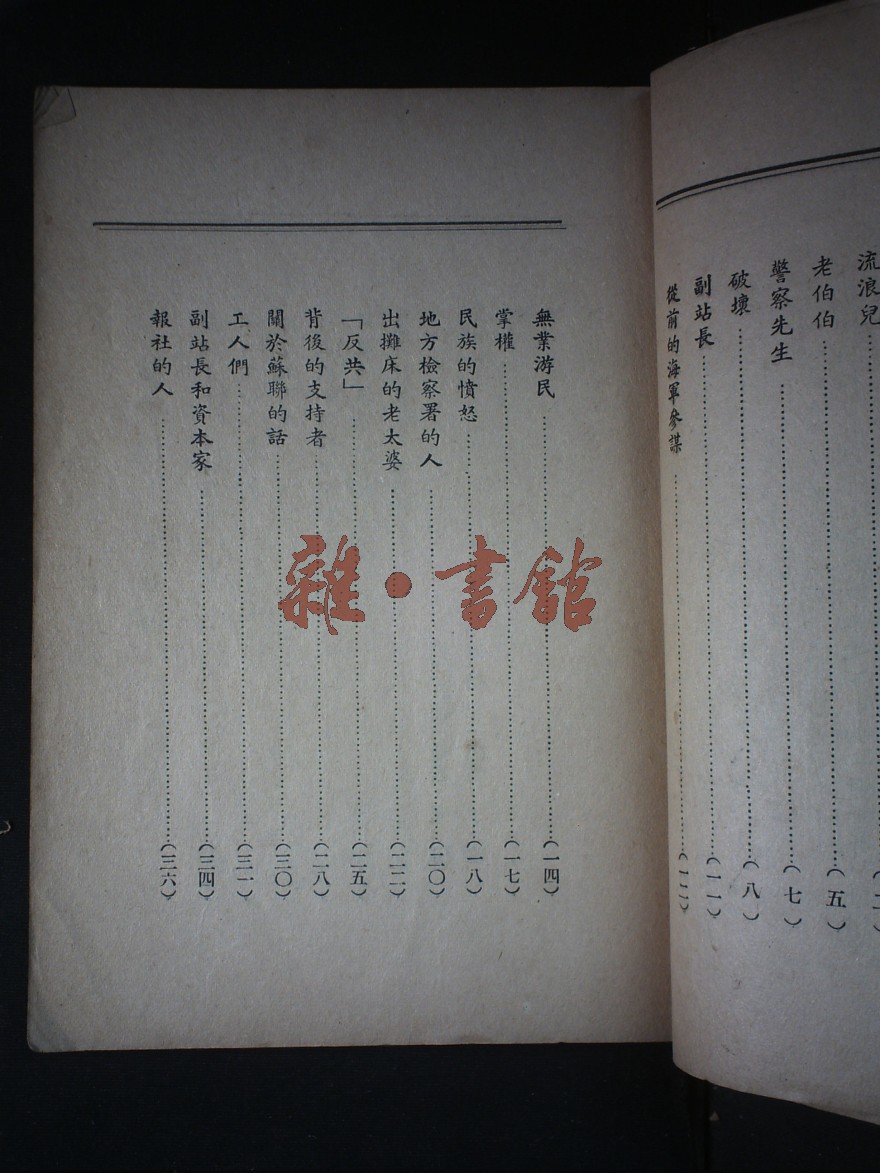 流浪兒
老伯伯（五）
警察先生（七）
破壞（八）
副站長（一一）
從前的海軍參謀（一二）
無業游民（一四）
掌權（一七）
民族的憤怒（一八）
地方檢察署的人（二〇）
出攤床的老太婆（二二）
「反共」（二五）
背後的支持者（二八）
關於蘇聯的話（三〇）
工人們（三一）
副站長和資本家（三四）
報社的人（三六）
雜·書館